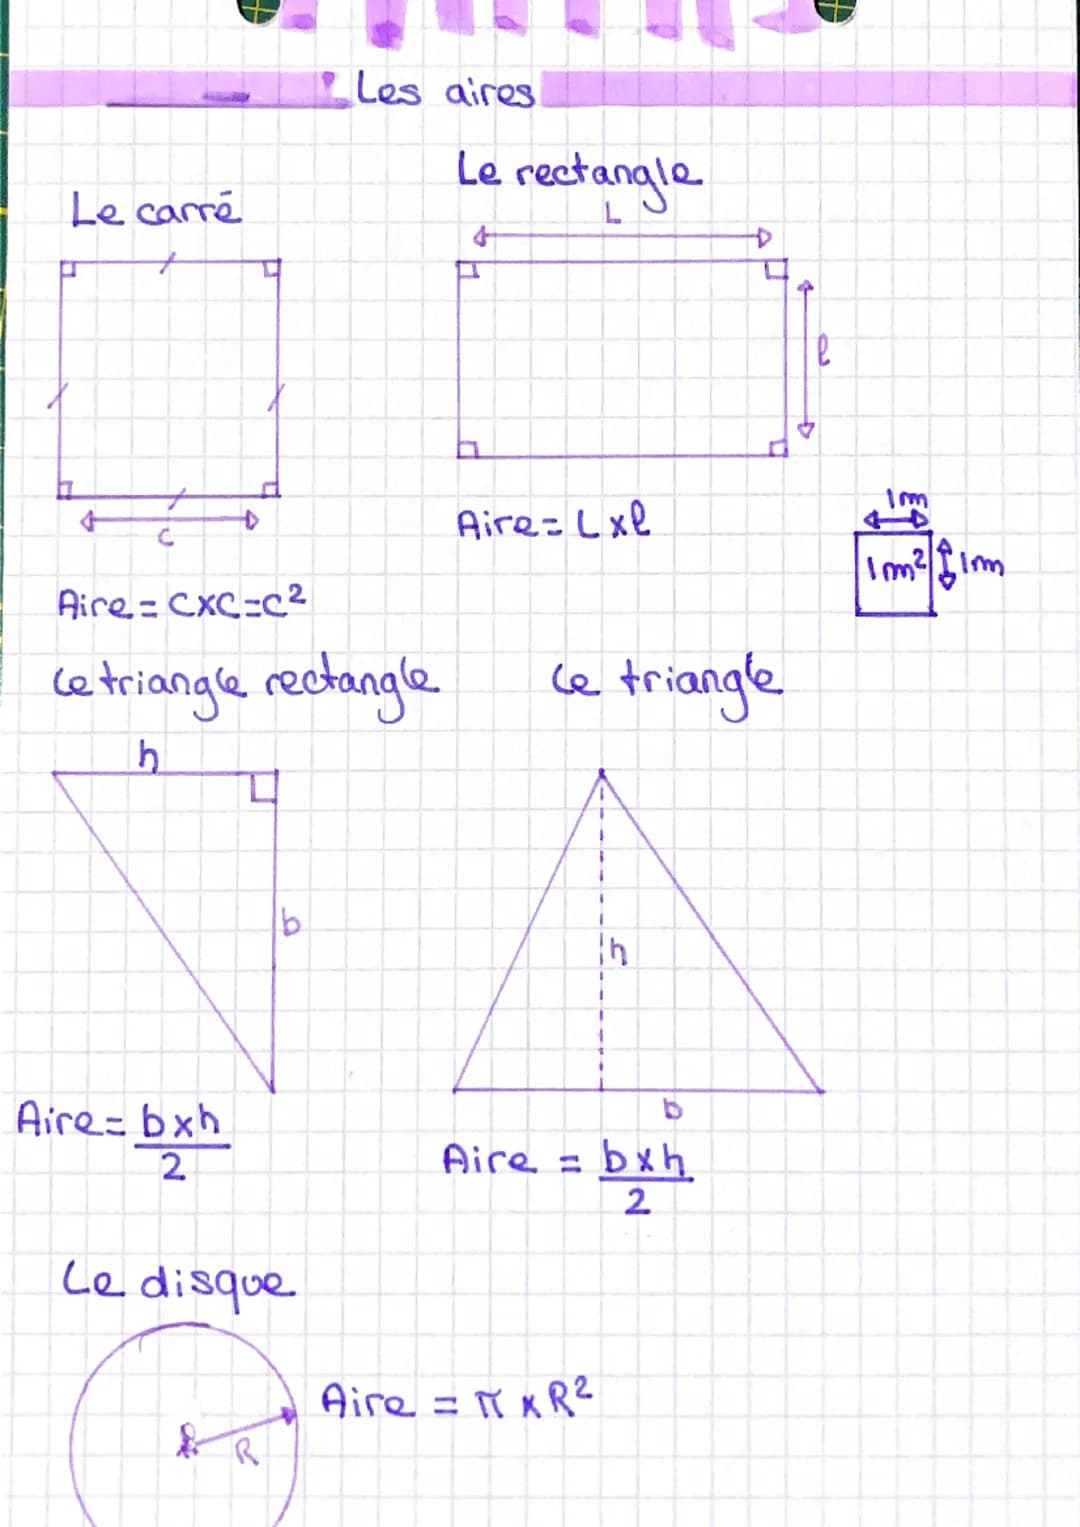 Les aires
Le carré
c
Aire = c×c = c²
Le rectangle
L
l
Aire = L×l
1m
1m²
1m
Le triangle rectangle
h
b
Aire = b×h
2
Le triangle
h
b
Aire = b×h
2
Le disque
R
Aire = π × R²